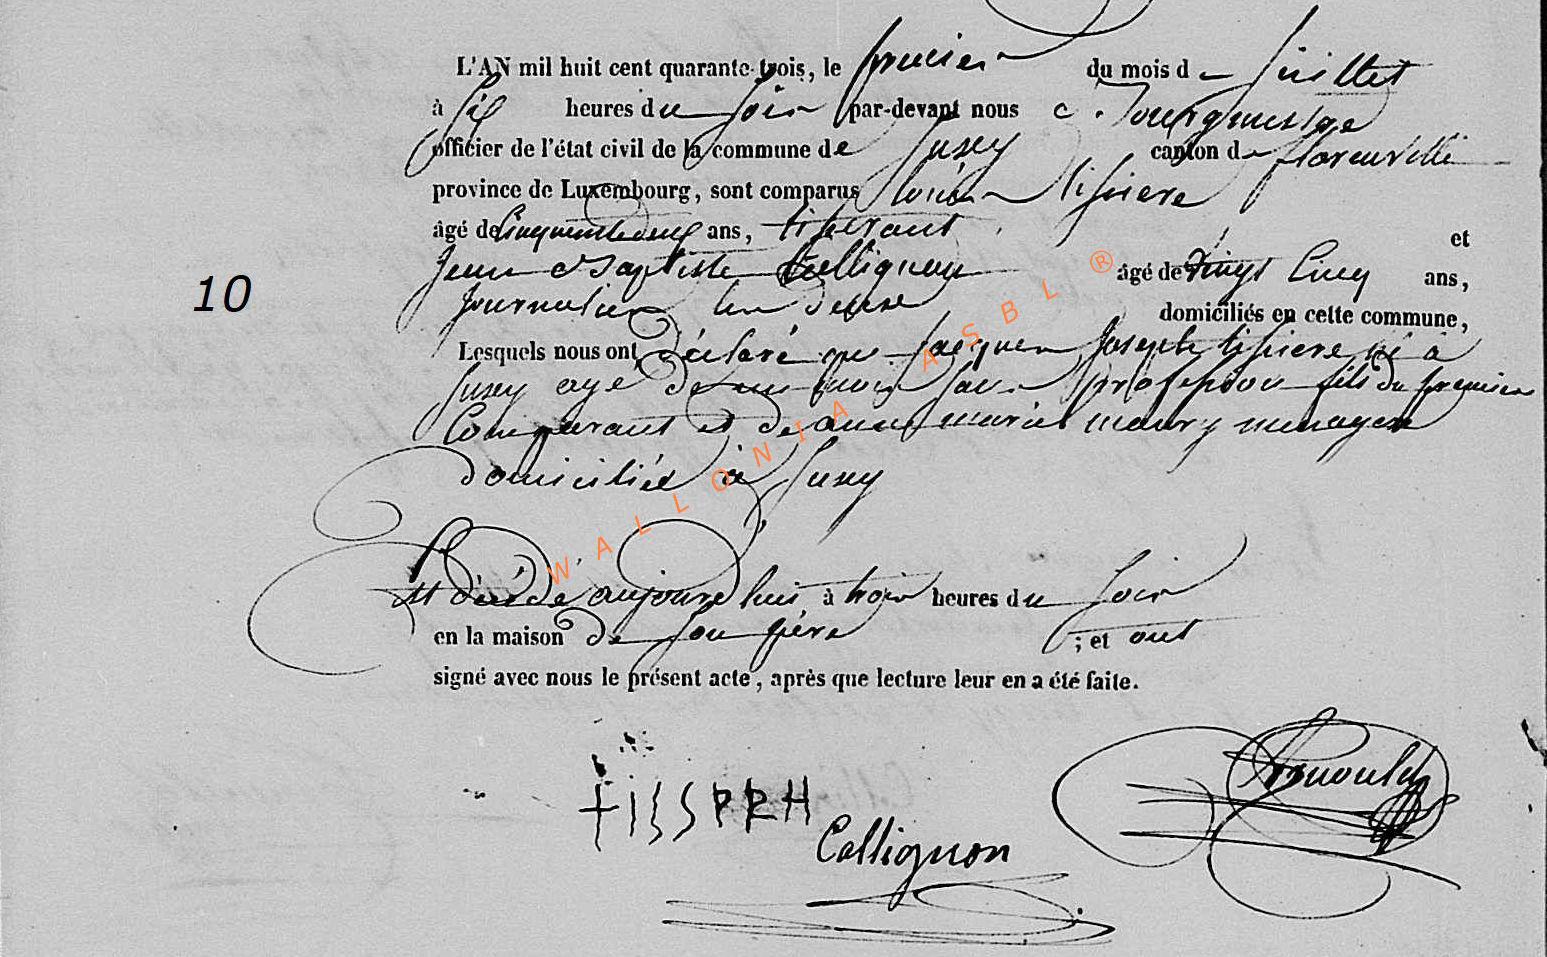 L'AN mil huit cent quarante-trois, le premier du mois de Juillet
à six heures du soir par-devant nous Bourgmestre
officier de l'état civil de la commune de Suxey canton de florenville
province de Luxembourg, sont comparus Louis tissiere
âgé de Cinquante deux ans, tisserant et
Jean Baptiste Collignon âgé de vingt Cinq ans,
Journalier domiciliés en cette commune,
Lesquels nous ont déclaré que Jacques Joseph tissiere né à
Suxey agé de mois sans profession fils du premier
Comparant et de anne marie maury menagere
domiciliée à Suxey
Est décédé aujourd'huis à trois heures du soir
en la maison de son père ; et ont
signé avec nous le présent acte, après que lecture leur en a été faite.
10
Collignon
WALLONIA ASBL ®